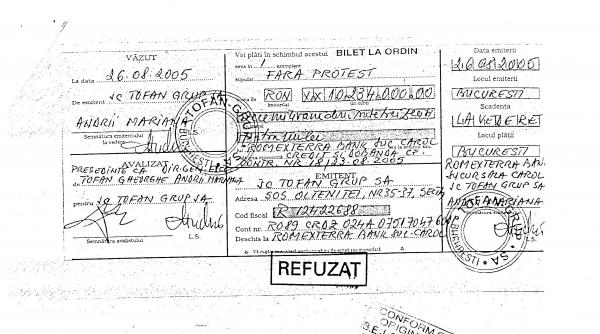 VĂZUT
La data 26.08.2005
De emitent SC TOFAN GRUP SA
ANDRII MARIANA
Semnătura emitentului
la vedere
L.S.
AVALIZAT
PRESEDINTE CA
TOFAN GHEORGHE ANDRII MARIANA
pentru SC TOFAN GRUP SA
Semnătura avalistului
L.S.
Voi plăti în schimbul acestui BILET LA ORDIN
emis în 1 exemplare
stipulat FARA PROTEST
suma de RON XX 10234000.00
ROMEXTERRA BANK SUC. CAROL
CREDIT + DOBANDA CF.
CONTR. NR. 18/23.08.2005
EMITENT
SC TOFAN GRUP SA
Adresa SOS OLTENITEI, NR 35-37, SECT4
Cod fiscal R 12422688
Cont nr. RO89 CROZ 024A
Deschis la ROMEXTERRA BANK SUC. CAROL
Data emiterii
26.08.2005
Locul emiterii
BUCURESTI
Scadența
LA VEDERE
Locul plății
BUCURESTI
ROMEXTERRA BANK
SUCURSALA CAROL
SC TOFAN GRUP SA
ANDRII MARIANA
L.S.
TOFAN GRUP SA
BUCUREȘTI
REFUZAT
CONFORM CU
ORIGINAL